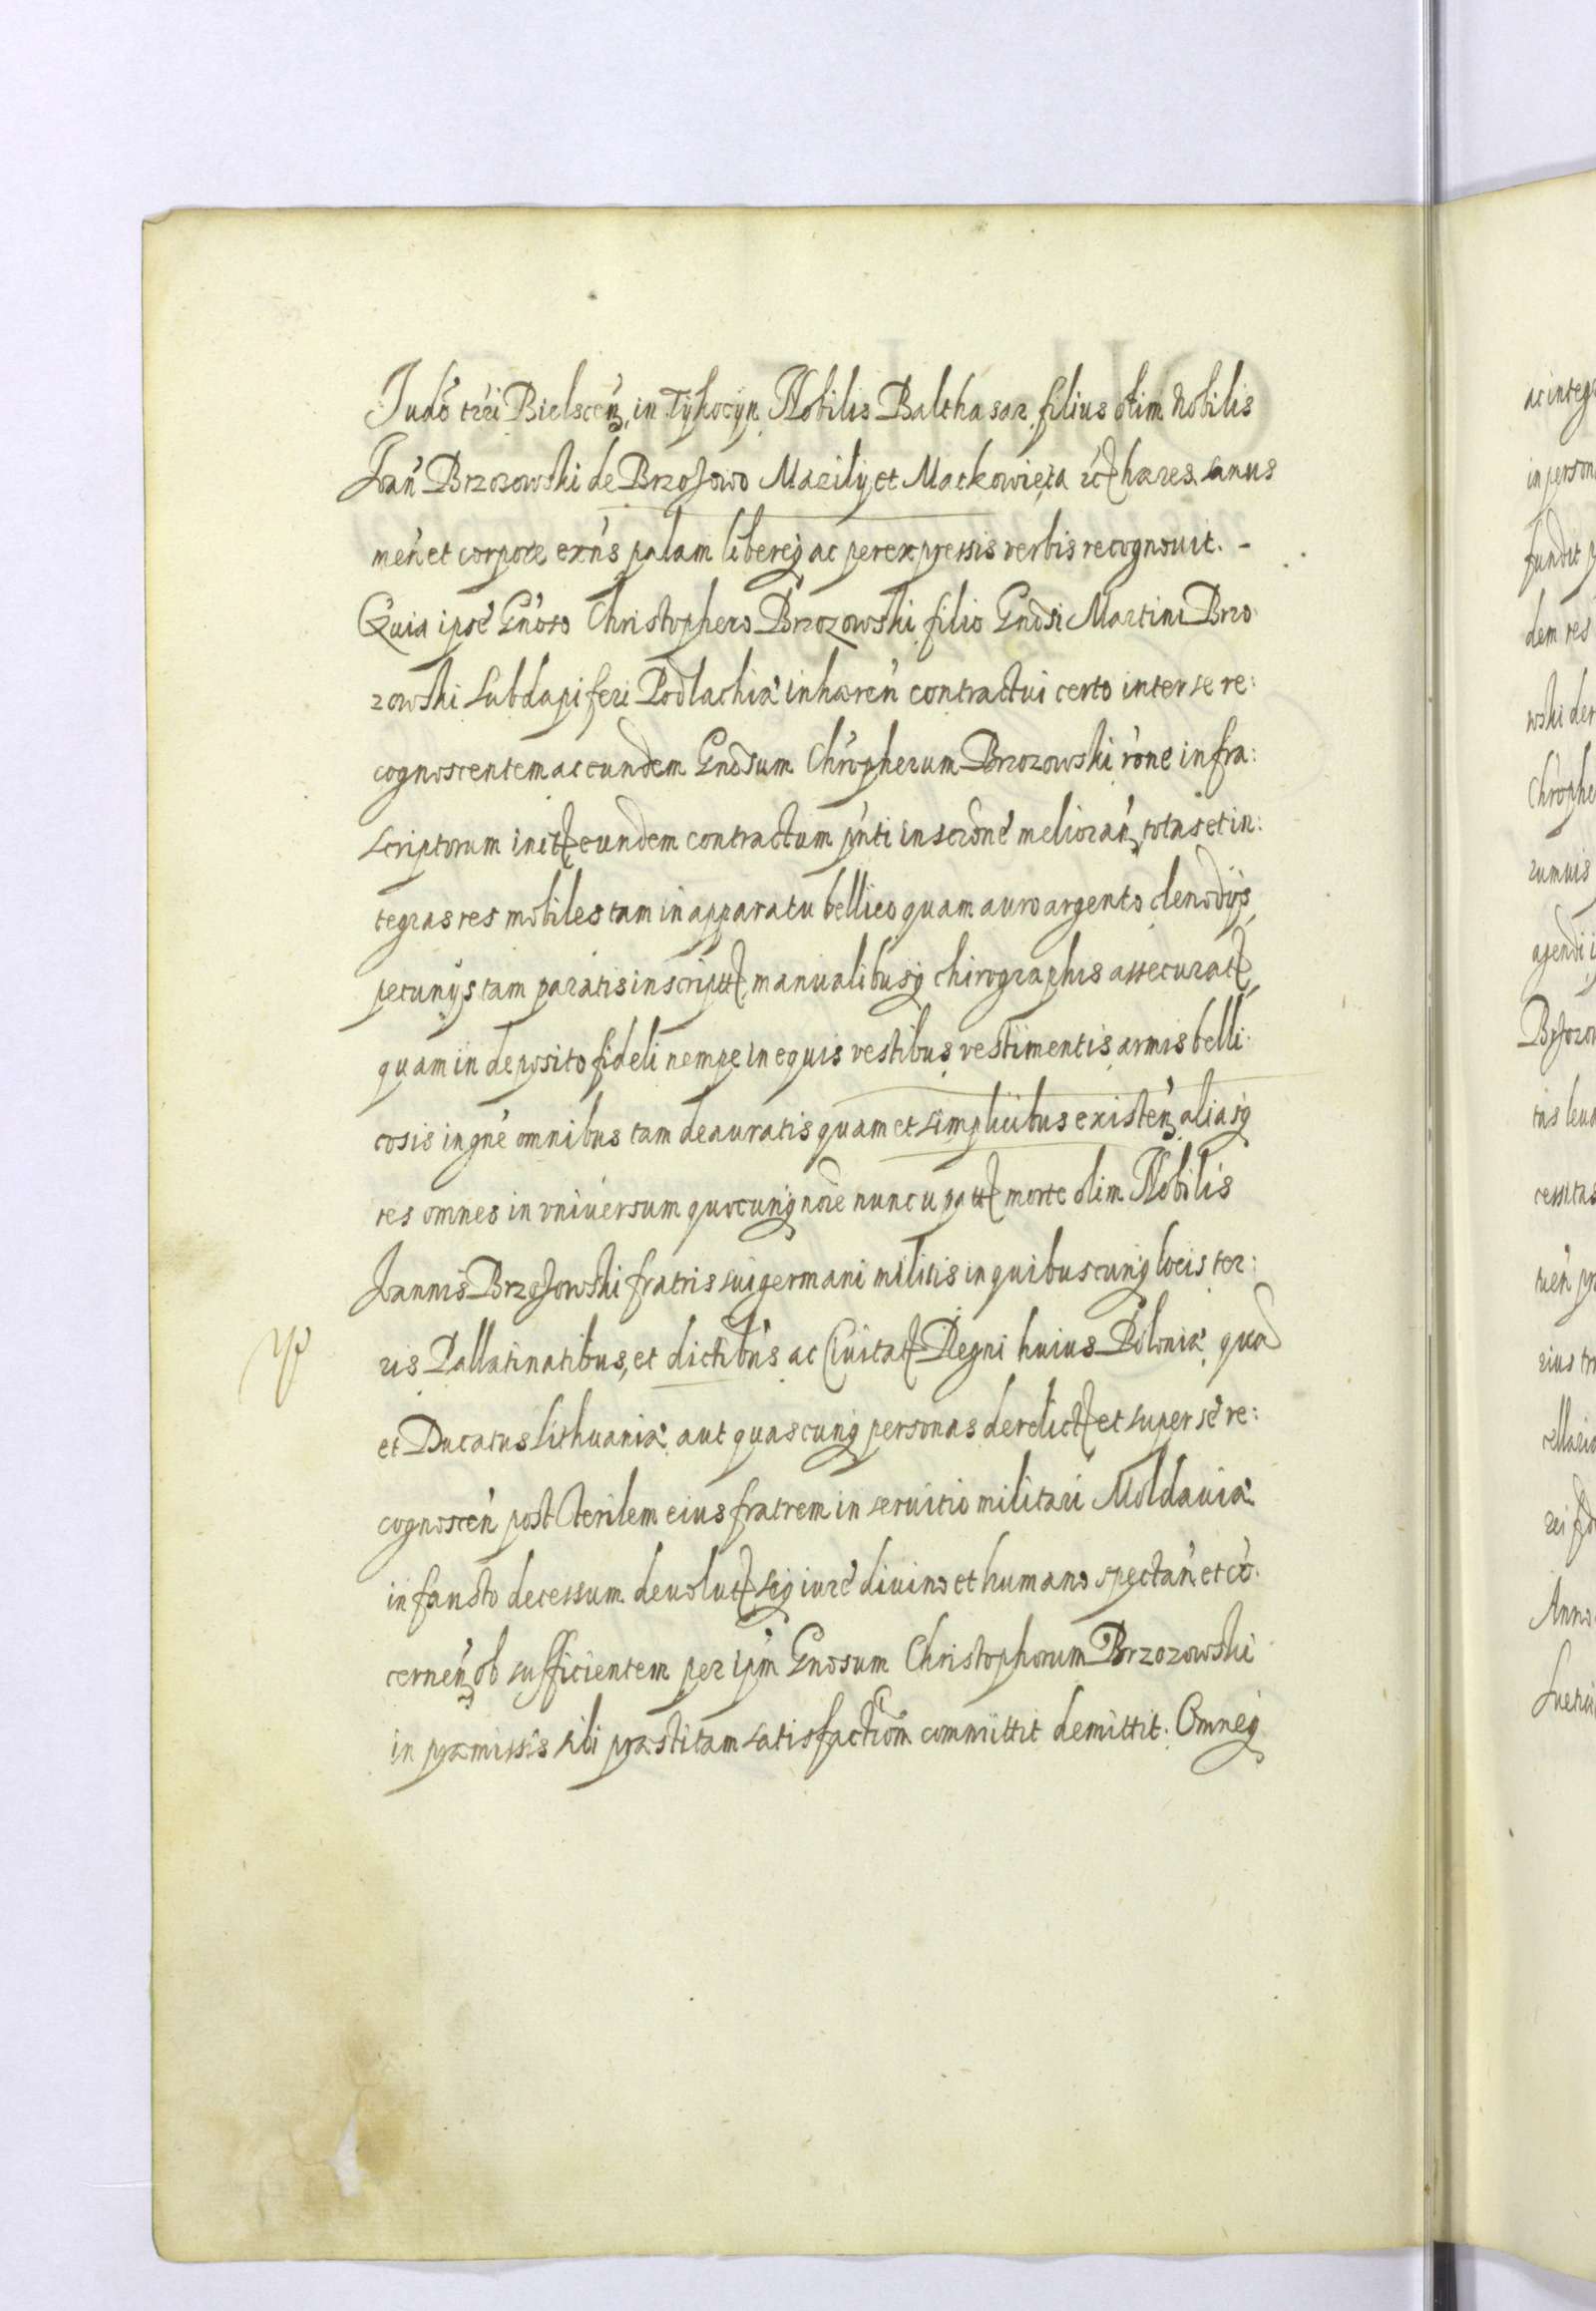 Judõ trri Bielsceñ, in Tykocyn Nobilis Balthasar filius olim Nobilis
Joañ Brzozowski de Brzozowo Mazily et Markowięta rct hæres sanus
meñ et corpore exñs palam libereq ac per expressis verbis recognovit. -
Quia ipse Gñoso Christophero Brzozowski filio Gnosi Martini Brzo:
zowski Subdapiferi Podlachiæ inhæreñ contractui certo inter se re:
cognoscentem ac eundem Gnosum Chrõpherum Brzozowski rõne infra:
scriptorum init eundem contractum pñti inscrõne meliorañ, totas et in:
tegras res mobiles tam in apparatu bellico quam auro argento clenodijs,
pecunijs tam paratis inscriptt, manualibusq chirographis assecurat,
quam in deposito fideli nempe in equis vestibus vestimentis armis belli:
cosis in gñe omnibus tam deauratis quam et simplicibus existeñ, aliasq
res omnes in vniuersum quocunq nõie nuncupatt morte olim Nobilis
Joannis Brzozowski fratris sui germani militis in quibuscunq locis ter:
ris Pallatinatibus, et dictibus ac Ciuitat Regni huius Poloniæ, qua
et Ducatus Lithuaniæ aut quascunq personas derelict et super se re:
cognosceñ post sterilem eius fratrem in seruitio militari Moldauiæ
infausto decessum deuolut, seq iure diuino et humano spectañ et cõ:
cerneñ, ob sufficientem per ipm Gnosum Christophorum Brzozowski
in præmissis sibi præstitam satisfactiom committit demittit. Omneq